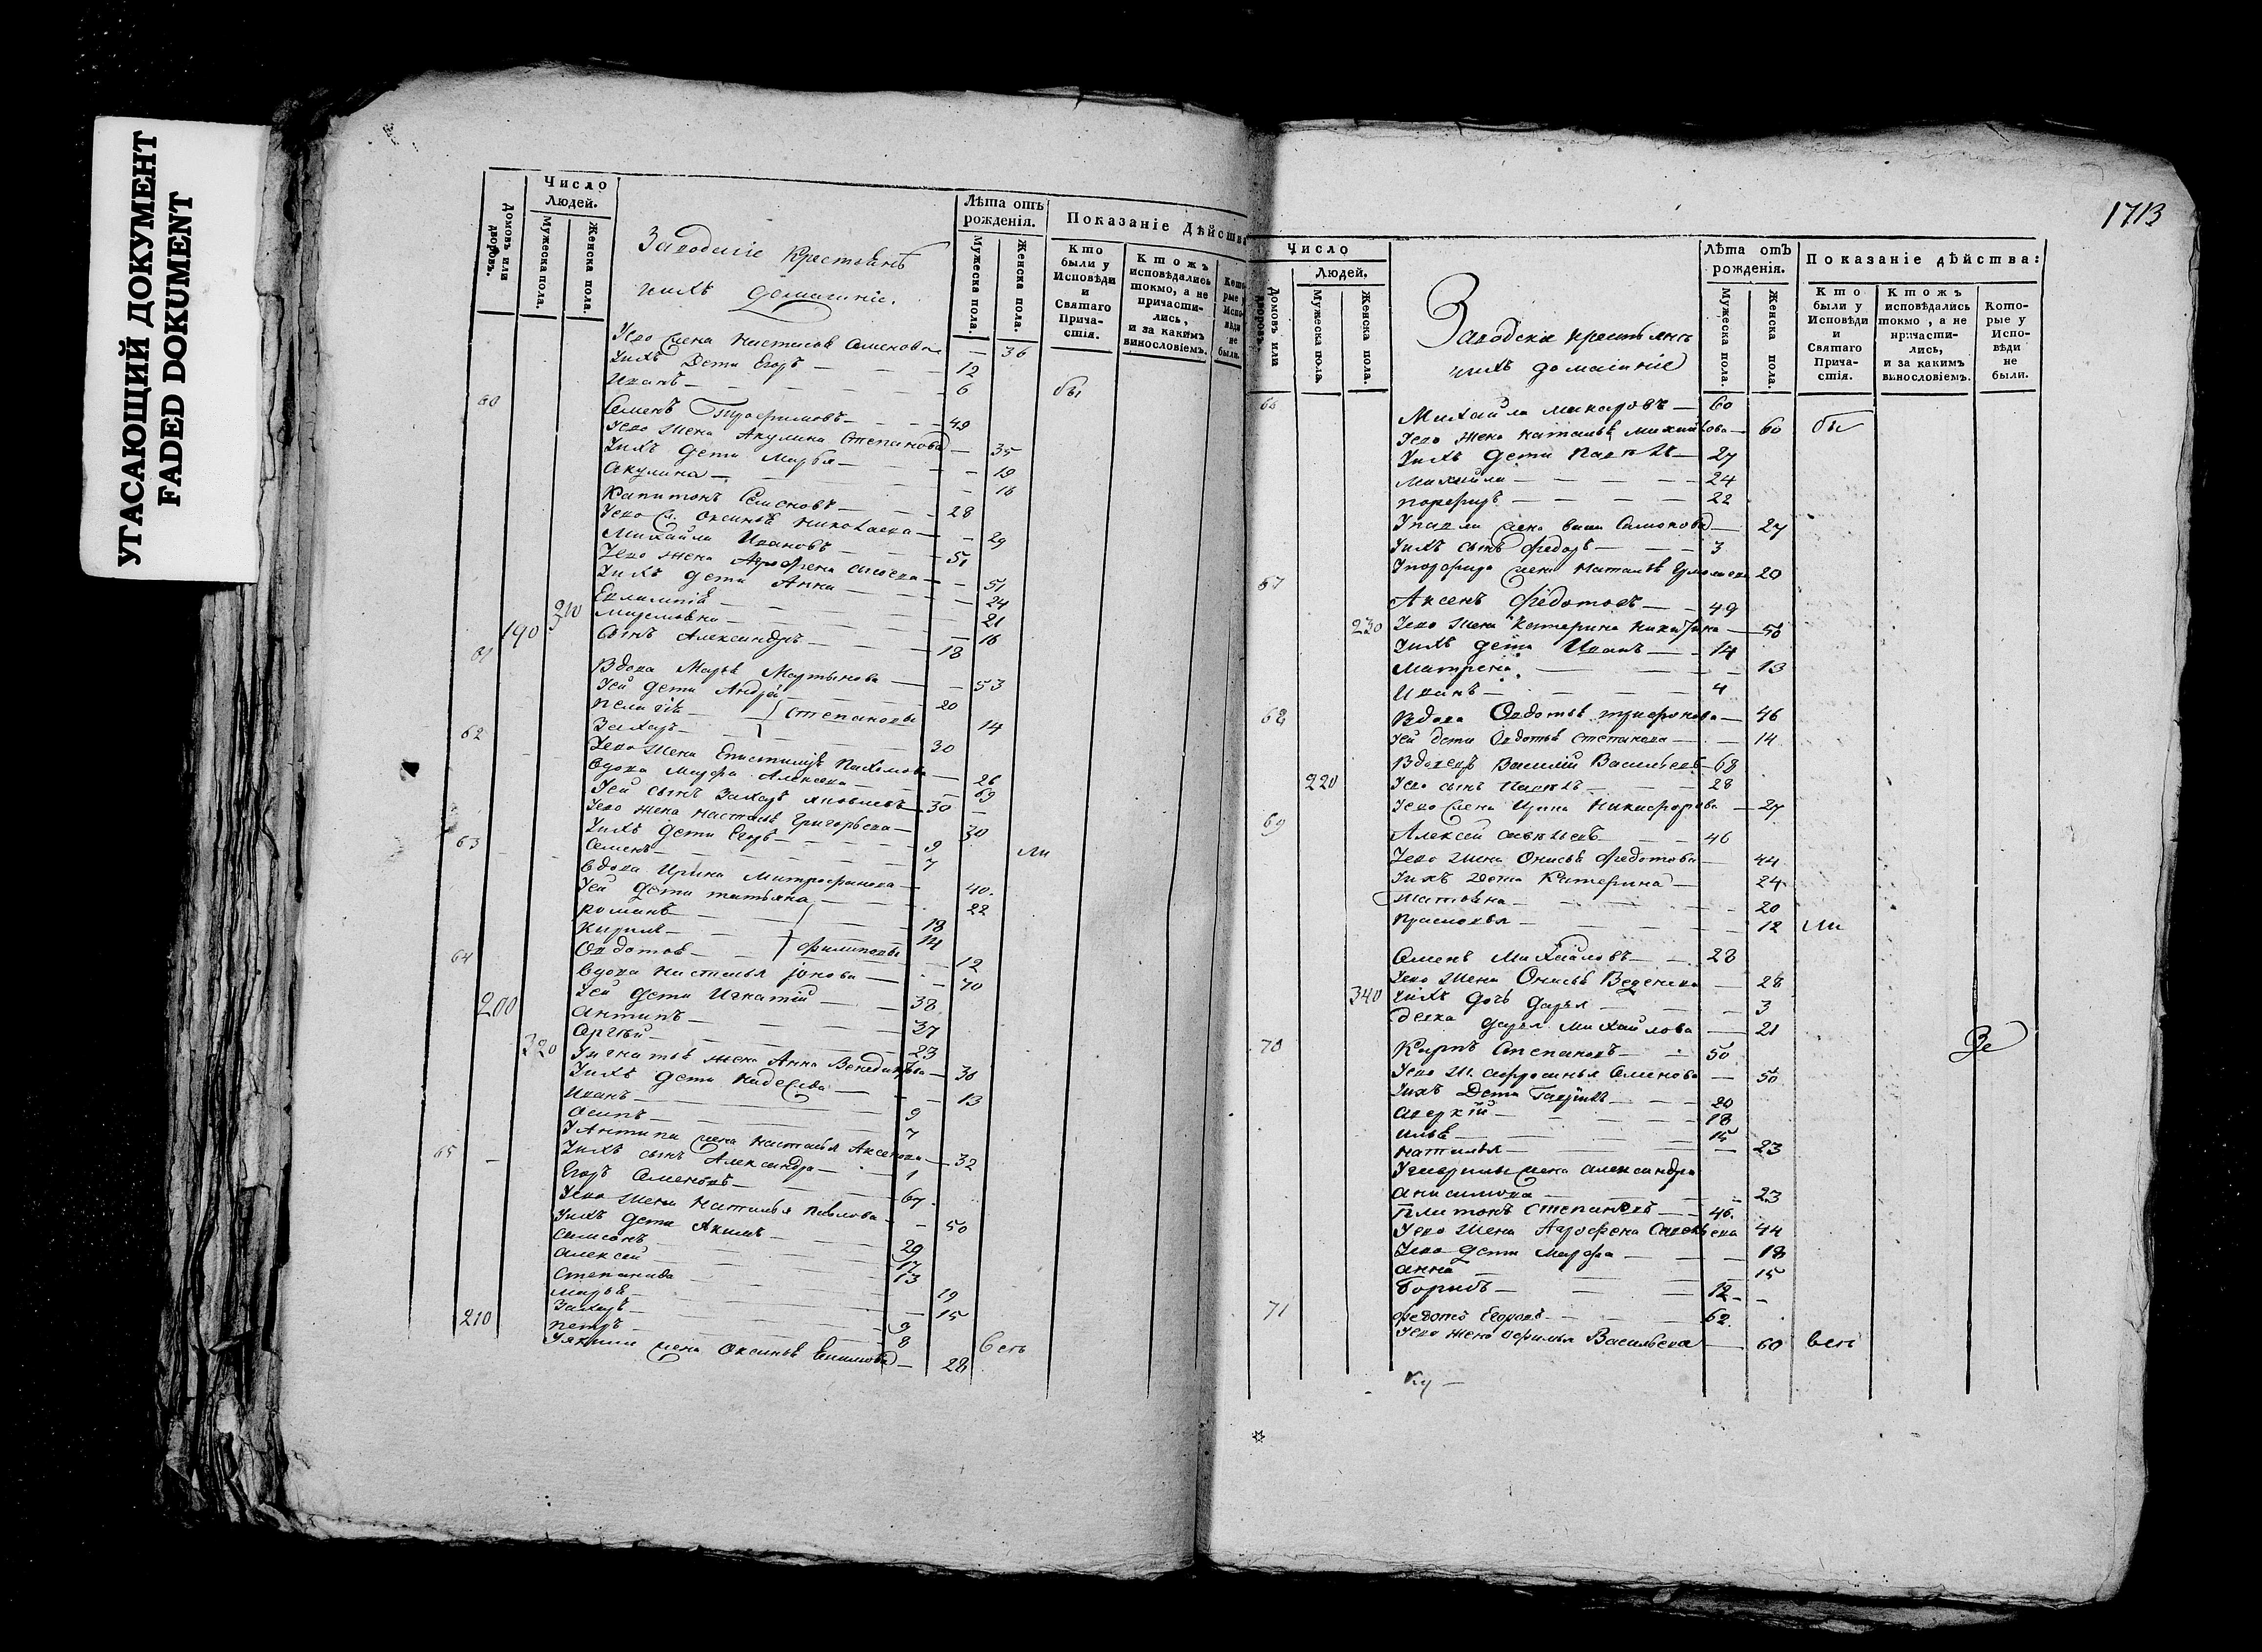 УГАСАЮЩИЙ ДОКУМЕНТ
FADED DOKUMENT
Домовъ или дворовъ.
Число
Людей.
Мужеска пола.
Женска пола.
Заводскіе Крестьянѣ
ихъ домашніе.
Лѣта отъ рожденія.
Мужеска пола.
Женска пола.
Показаніе Дѣйства
Кто были у Исповѣди и Святаго Причастія.
Ктожъ исповѣдались токмо, а не причастились, и за какимъ винословіемъ.
Которые у Исповѣди не были.
Его жена Насталья Семенова — 36
Ихъ Дети Егоръ — 12
Иванъ — 6 бы
60 Семенъ Трофимовъ — 49
Его жена Акулина Степанова — 35
Ихъ дети Марья — 19
Акулина — 16
Капитонъ Семеновъ — 28
Его ж. Оксинья Николаева — 29
Михайла Ивановъ — 51
Его жена Агрофена — 51
Ихъ дети Анна — 24
Евлампія — 21
— 16
190 Сынъ Александръ — 18
61 Вдова Марья Мартынова — 53
Ея дети Андрей — 20
Пелагія — Степановы 14
62 Захаръ — 30
Его жена Епистимія Пахомова — 26
Вдова Марфа Алексеева — 69
Ея сынъ Захаръ Яковлевъ — 30
Его жена Насталья Григорьева — 30
Ихъ дети Егоръ — 9
63 Семенъ — 7 ли
Вдова Ирина Митрофанова — 40
Ея дети Татьяна — 22
Романъ — 18
Кирила — 14
Овдотья — Филиповы 12
64 Вдова Насталья Іонова — 70
Ея дети Игнатій — 38
200 Антипъ — 37
Сергѣй — 23
320 У Игнатья жена Анна — 36
Ихъ дети Надежда — 13
Иванъ — 9
Осипъ — 7
У Антипа жена Насталья Аксенова — 32
Ихъ сынъ Александра — 1
65 Егоръ Семеновъ — 67
Его жена Наталья Павлова — 50
Ихъ дети Акимъ — 29
Самсонъ — 17
Алексей — 13
Степанида — 19
Марья — 15
Захаръ — 9
210 Петръ — 8
У Якима жена Оксинья — 28 весь
1713
Домовъ или дворовъ.
Число
Людей.
Мужеска пола.
Женска пола.
Заводскія крестьянѣ
ихъ домашніе
Лѣта отъ рожденія.
Мужеска пола.
Женска пола.
Показаніе дѣйства:
Кто были у Исповѣди и Святаго Причастія.
Ктожъ исповѣдались токмо, а не причастились, и за какимъ винословіемъ.
Которые у Исповѣди не были.
66 Михайла Макаровъ — 60
Его жена Наталья — 60 бы
Ихъ дети Павелъ — 27
Михайла — 24
Порфиръ — 22
У Павла жена Самсонова — 27
Ихъ сынъ Федоръ — 3
У Порфира жена Наталья Ермолаева 20
67 Аксенъ Федотовъ — 49
230 Его жена Катерина Никитина — 50
Ихъ дети Иванъ — 14
Матрена — 13
Иванъ — 4
68 Вдова Овдотья Трифонова — 46
Ея дети Овдотья Степанова — 14
Вдовецъ Василий Васильевъ — 68
220 Его сынъ Павелъ — 28
Его жена Ирина Никифорова — 27
69 Алексей — 46
Его жена Онисья Федотова — 44
Ихъ Дети Катерина — 24
Татьяна — 20
Прасковья — 12 ли
Семенъ Михайловъ — 28
Его жена Онисья — 28
340 Ихъ дочь Дарья — 3
Девка Дарья Михайлова — 21
70 Карпъ Степановъ — 50
Его ж. Афросинья Семенова — 50
Ихъ Дети Гаврила — 20
Аверкій — 18
Илья — 15
Наталья — 23
У Гаврилы жена Александра
Анисимова — 23
Платонъ Степановъ — 46
Его жена Агрофена Савельева 44
Его дети Марфа — 18
Анна — 15
Борисъ — 12
71 Федотъ Егоровъ — 62
Его жена Офимья Васильева — 60 весь